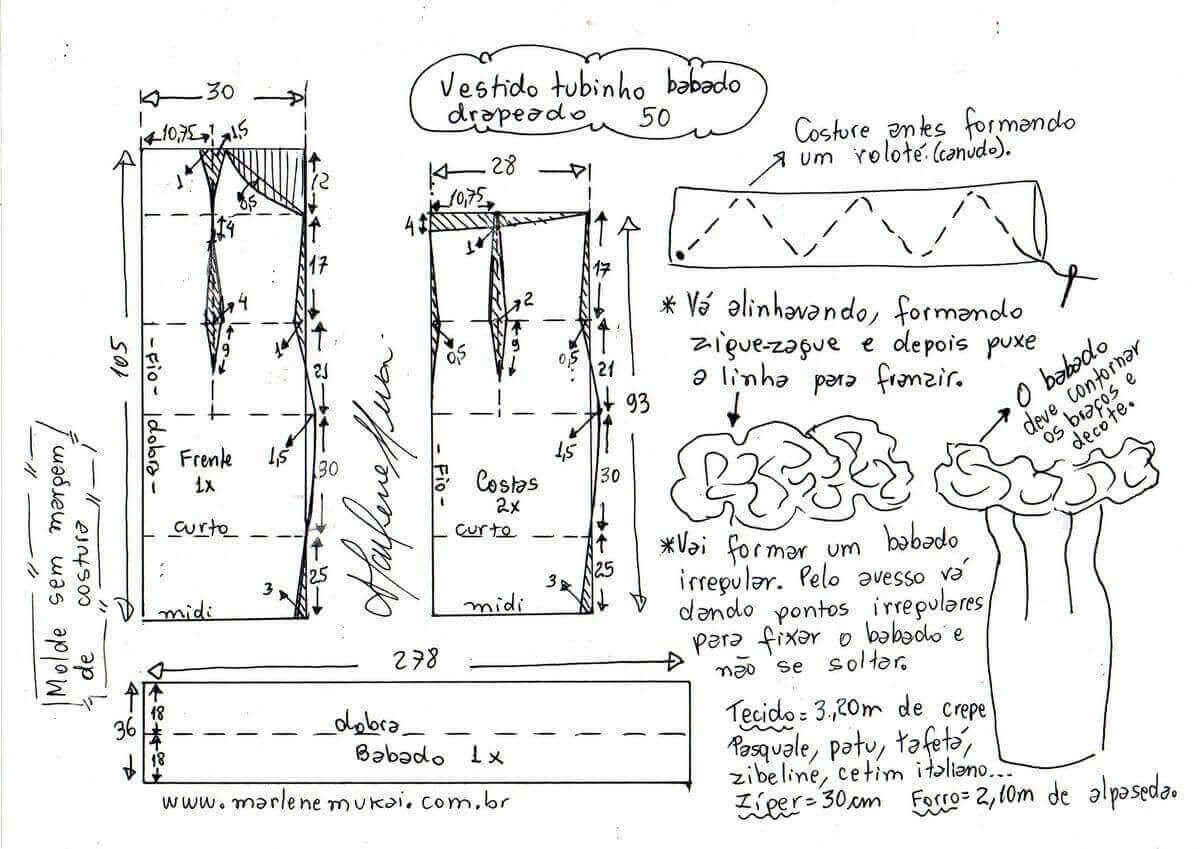 Vestido tubinho babado
drapeado 50
30
10,75
1,5
1
0,5
12
4
17
4
9
1
21
105
- Fio - dobra -
Frente
1x
1,5
30
curto
25
3
midi
Molde sem margem
de costura
28
10,75
4
1
17
2
0,5
9
0,5
21
93
- Fio -
Costas
2x
1,5
30
curto
25
3
midi
Marlene Mukai.
278
36
18
18
dobra
Babado 1x
www.marlenemukai.com.br
Costure antes formando
um roloté.(canudo).
* Vá alinhavando, formando
zigue-zague e depois puxe
a linha para franzir.
O babado
deve contornar
os braços e
decote.
*Vai formar um babado
irregular. Pelo avesso vá
dando pontos irregulares
para fixar o babado e
não se soltar.
Tecido = 3,20m de crepe
Pasquale, patu, tafetá,
zibeline, cetim italiano...
Zíper = 30cm Forro = 2,10m de alpaseda.